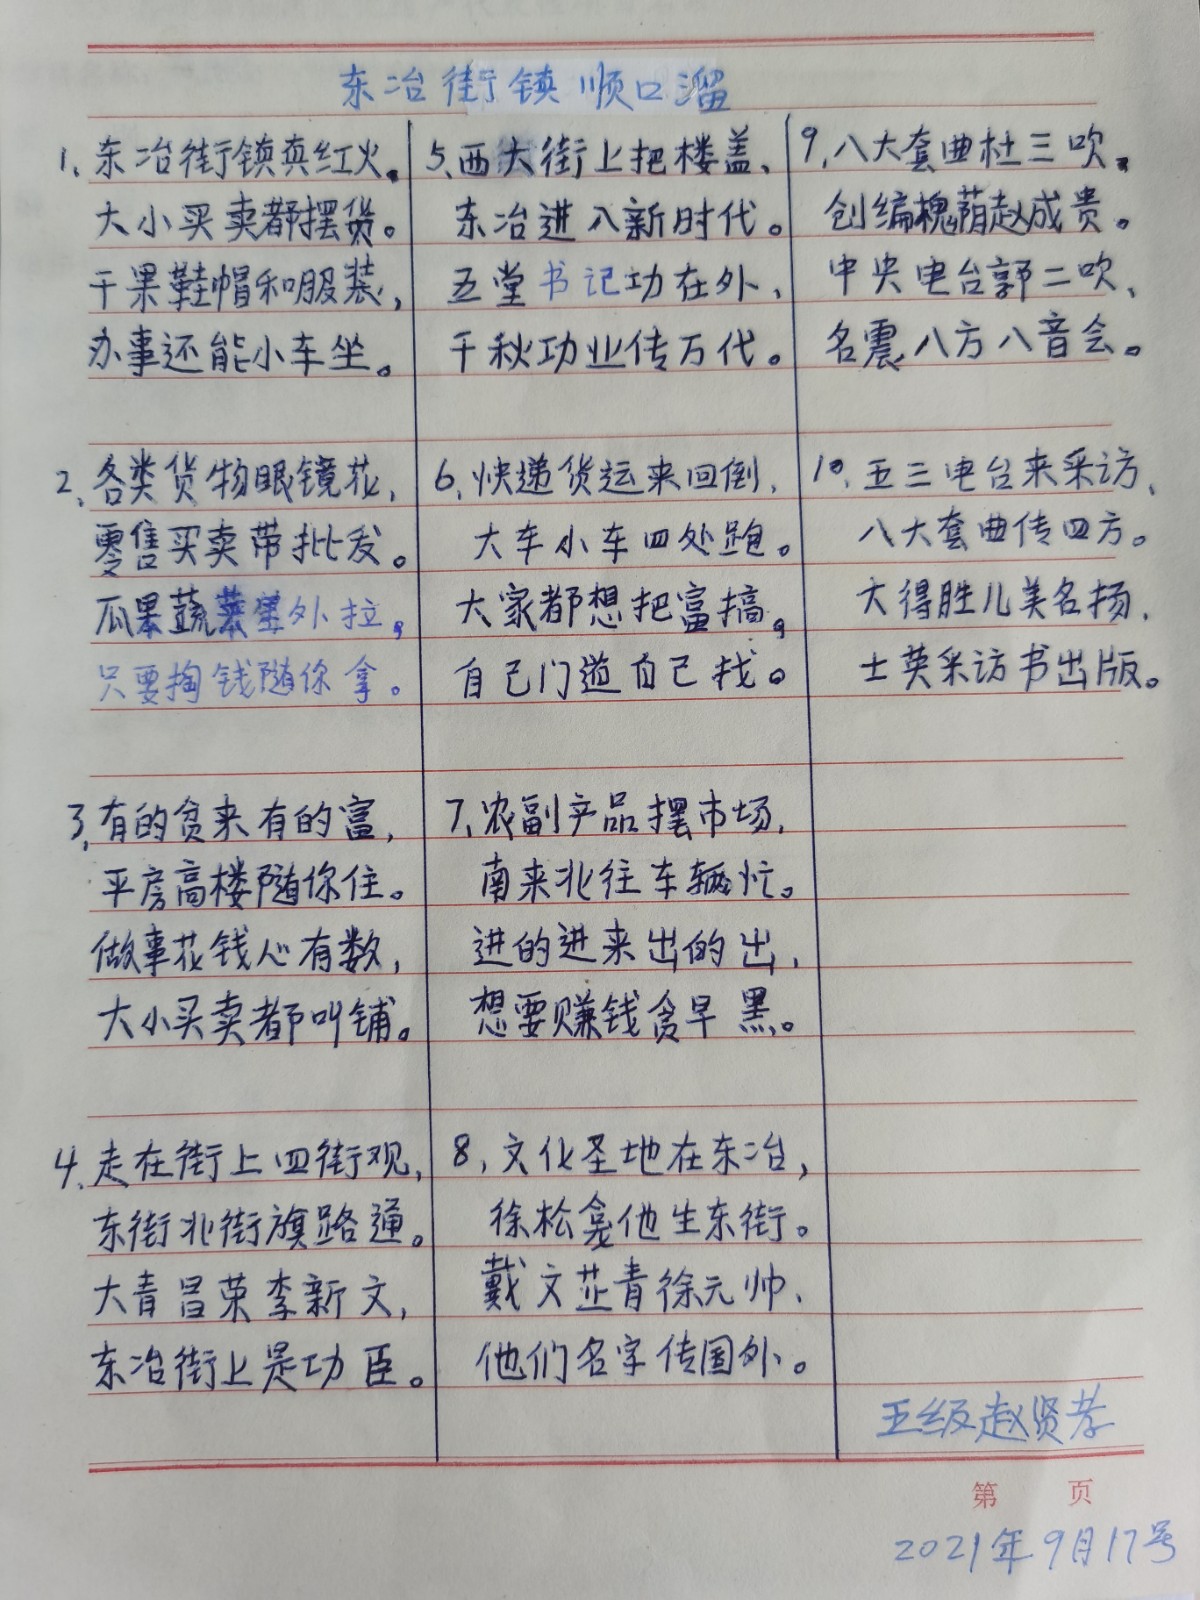 东冶街镇顺口溜
1、东冶街镇真红火。
大小买卖都摆货。
干果鞋帽和服装,
办事还能小车坐。
2、各类货物眼镜花,
零售买卖带批发。
瓜果蔬菜往外拉,
只要掏钱随你拿。
3、有的贫来有的富,
平房高楼随你住。
做事花钱心有数,
大小买卖都叫铺。
4、走在街上四街观,
东街北街旗路通。
大青昌荣李新文,
东冶街上是功臣。
5、西大街上把楼盖、
东冶进入新时代。
五堂书记功在外、
千秋功业传万代。
6、快递货运来回倒,
大车小车四处跑。
大家都想把富搞,
自己门道自己找。
7、农副产品摆市场,
南来北往车辆忙。
进的进来出的出,
想要赚钱贪早黑。
8、文化圣地在东冶,
徐松龛他生东街。
戴文芷青徐元帅、
他们名字传国外。
9、八大套曲杜三吹。
创编槐荫赵成贵。
中央电台郭二吹、
名震八方八音会。
10、五三电台来采访、
八大套曲传四方。
大得胜儿美名扬,
士英采访书出版。
五级赵贤孝
第 页
2021年9月17号